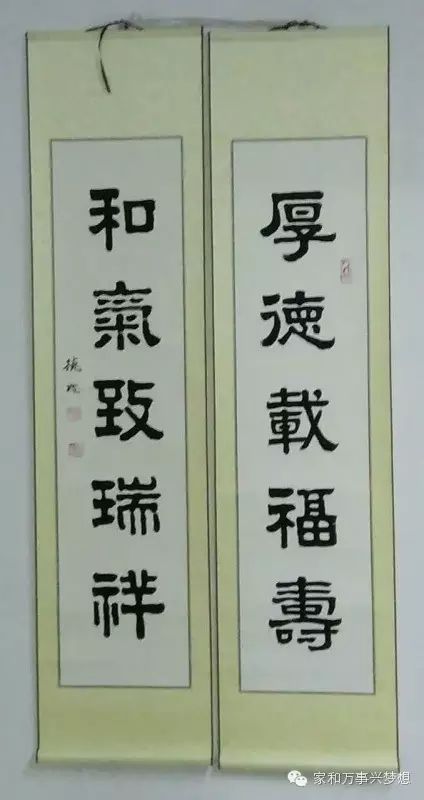 厚德載福壽
和氣致瑞祥
家和万事兴梦想